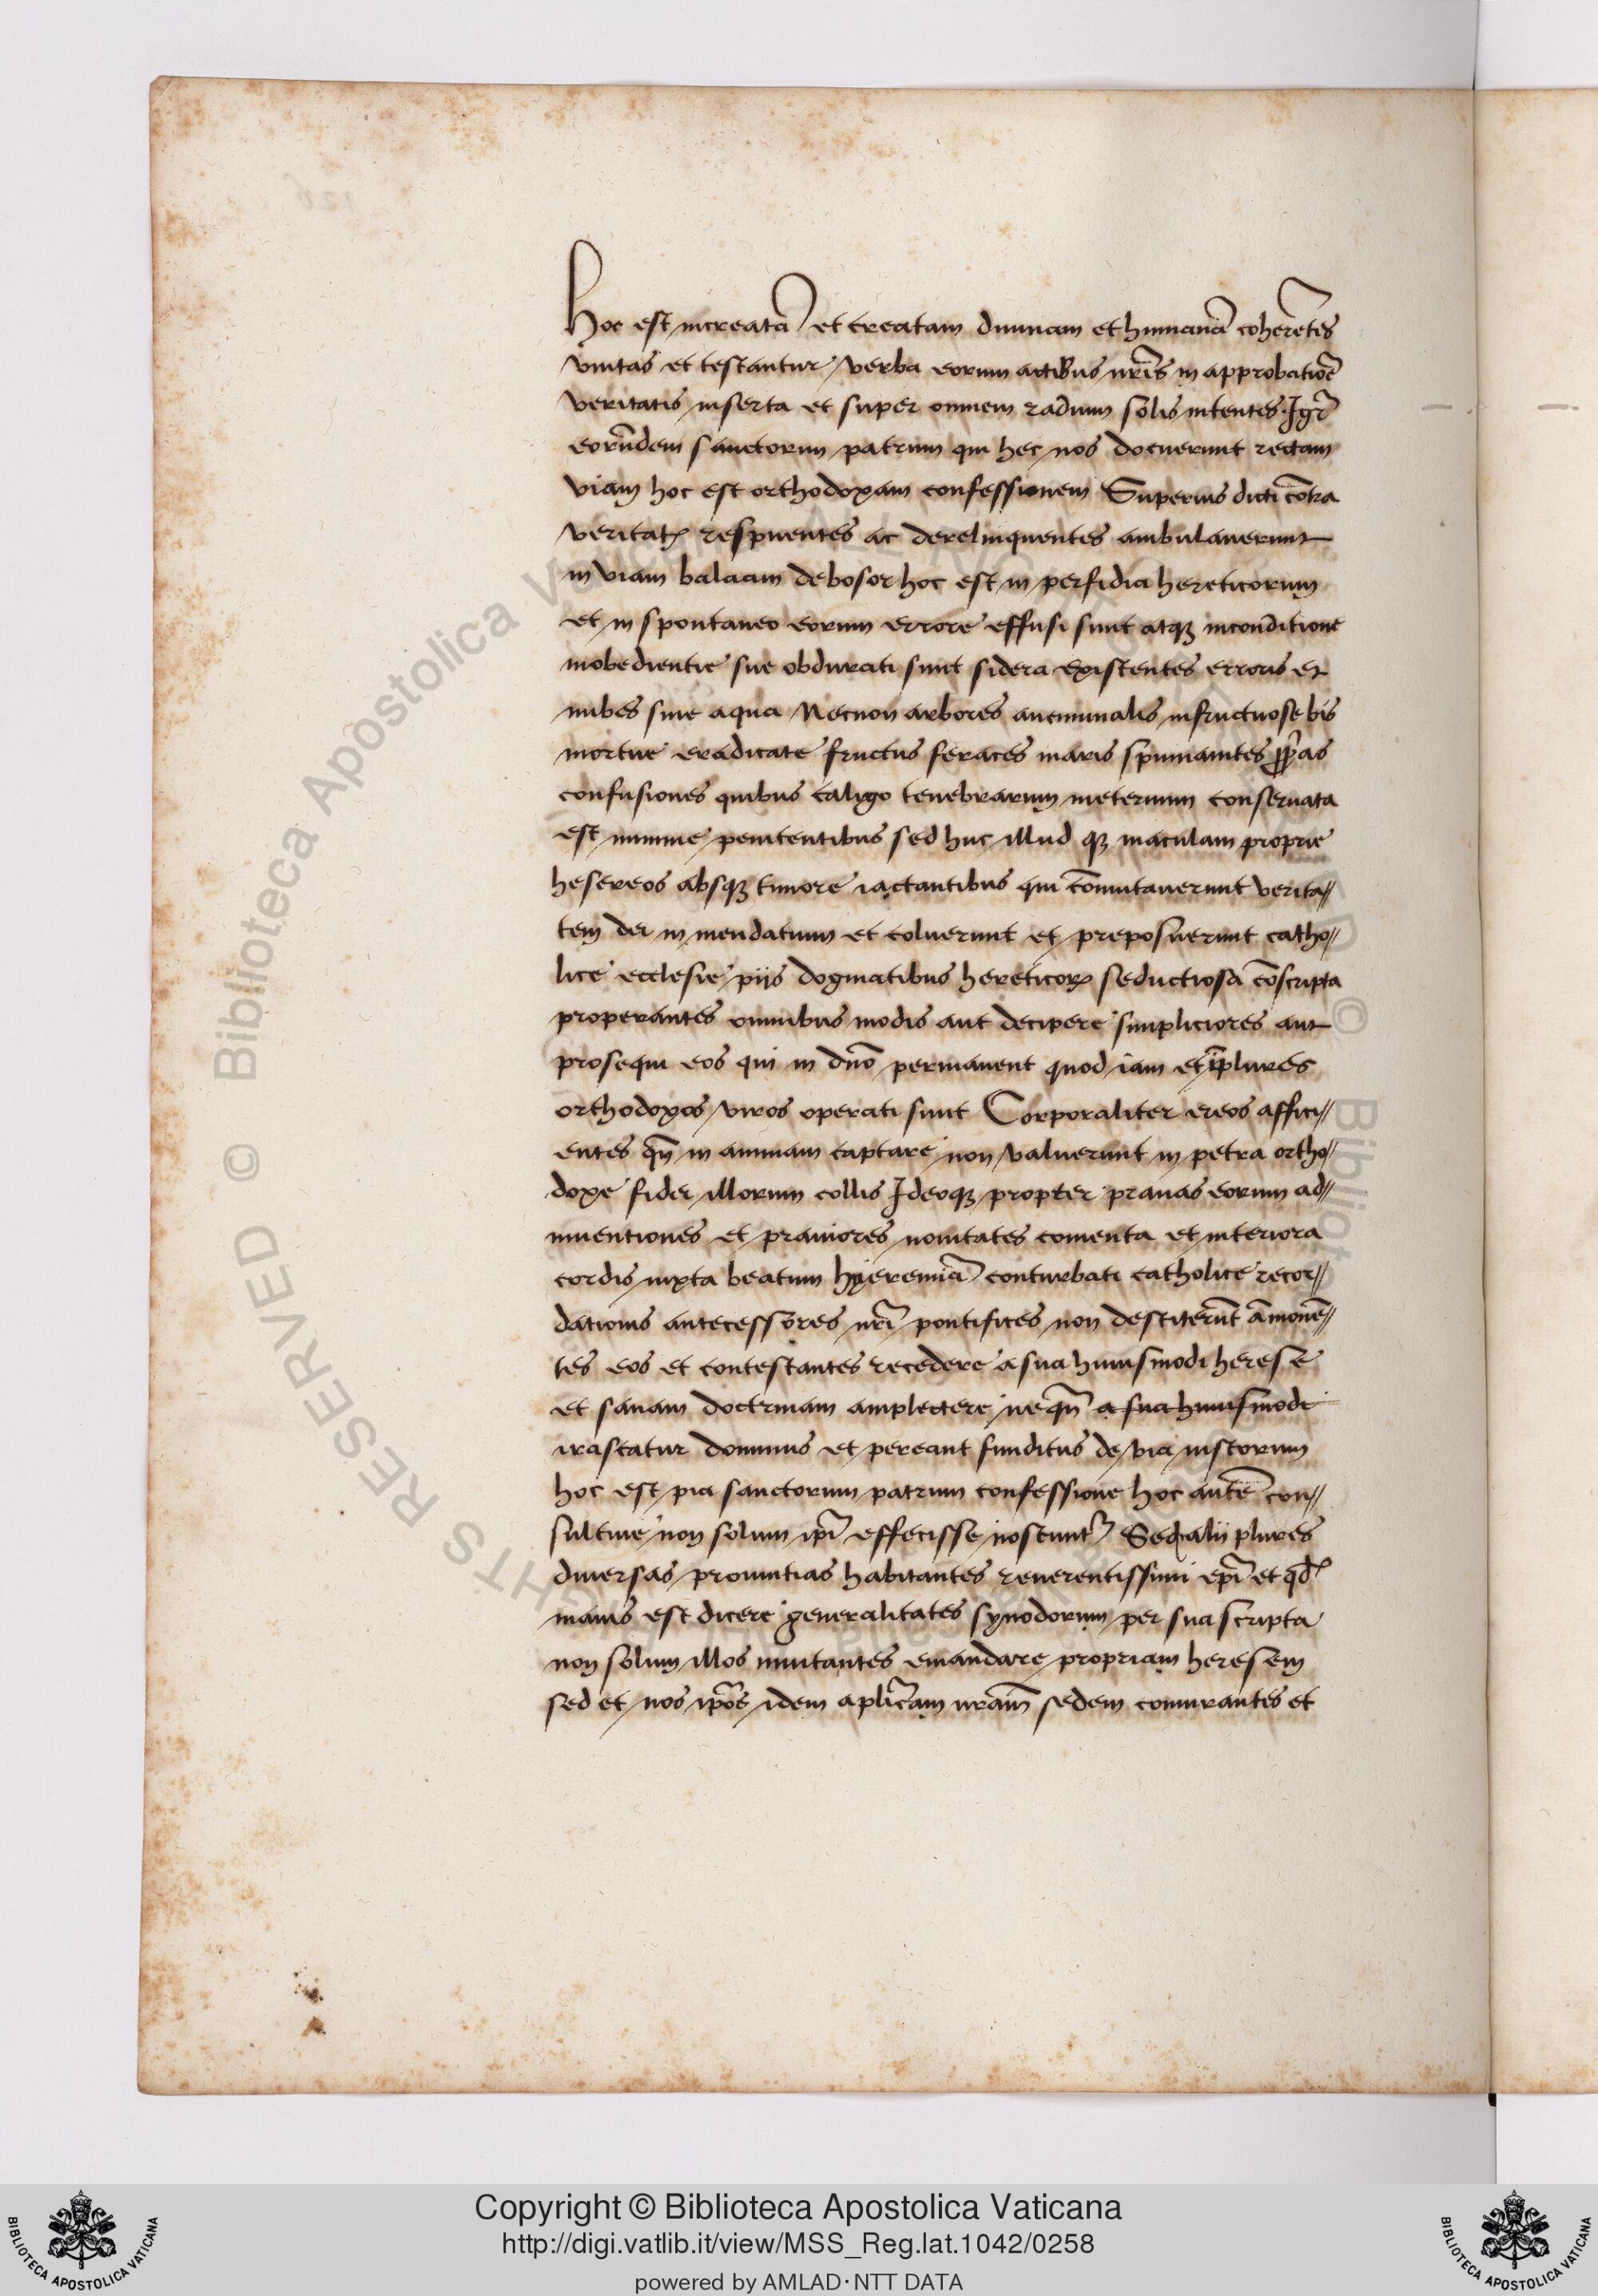 Hoc est increatã et creatam diuinam et humanã coherẽtes
vnitas et testantur verba eorum actibus nr̃is in approbationẽ
veritatis inserta et super omnem radium solis nitentes. Igr̃
eorũdem sanctorum patrum qui hec nos docuerunt rectam
viam hoc est orthodoxam confessionem Superius dicti cõtra
veritatꝭ respuentes ac derelinquentes ambulauerunt
in viam balaam de bosor hoc est in perfidia hereticorum
et in spontaneo eorum errore effusi sunt atqꝫ in conditione
inobedientie sue obdurati sunt sidera existentes erroris et
nubes sine aqua Necnon arbores autumnalis infructuose bis
mortue eradicate fructus feraces maris spumantes ꝓpͥas
confusiones quibus caligo tenebrarum in eternum conseruata
est minime penitentibus sed huc illud qꝫ maculam proprie
hesereos absqꝫ timore iactantibus qui cõmutauerunt verita//
tem dei in mendatium et coluerunt et preposuerunt catho//
lice ecclesie piis dogmatibus hereticoꝝ seductiosa cõscripta
properantes omnibus modis aut decipere simpliciores aut
prosequi eos qui in dño permanent quod iam et ĩ plures
orthodoxos viros operati sunt Corporaliter ereos affici//
entes qñ in animam captare non valuerunt in petra ortho//
doxe fidei illorum collis Ideoqꝫ propter prauas eorum ad//
inuentiones et prauiores nouitates comenta et interiora
cordis iuxta beatum hyeremiã conturbati catholice recor//
dationis antecessores nr̃i pontifices non destiterũt ãmonẽ//
tes eos et contestantes recedere a sua huiusmodi herese
et sanam doctrinam amplectere ne qñ a sua huiusmodi
irascatur dominus et pereant funditus de via iustorum
hoc est pia sanctorum patrum confessione hoc autẽ con//
sultiue non solum ip̃i effecisse noscuntᷣ Sed alii plures
diuersas prouintias habitantes reuerentissimi ep̃i et qđ
maius est dicere generalitates synodorum per sua scripta
non solum illos inuitantes emandare propriam heresem
sed et nos ip̃os idem aplicam nram̃ sedem coniurantes et
Copyright © Biblioteca Apostolica Vaticana
http://digi.vatlib.it/view/MSS_Reg.lat.1042/0258
powered by AMLAD·NTT DATA